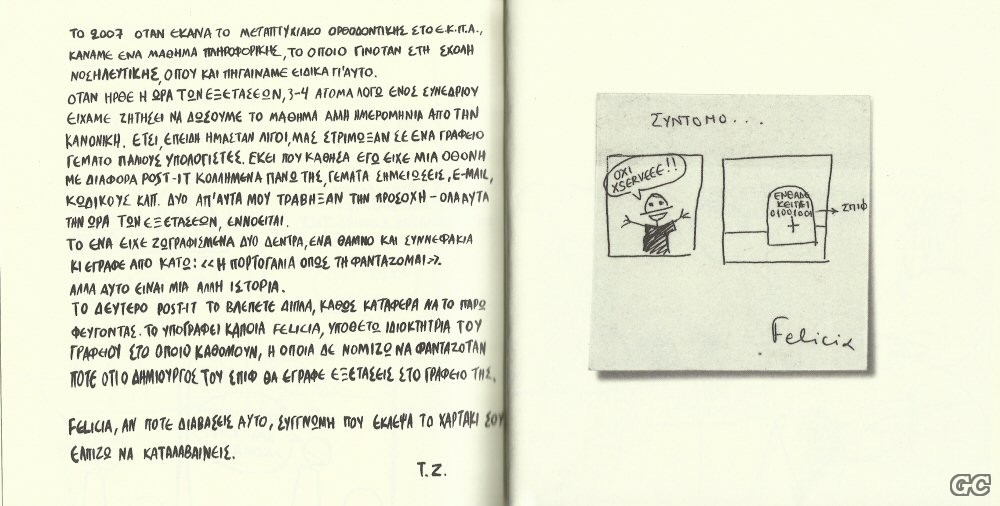 ΤΟ 2007 ΟΤΑΝ ΕΚΑΝΑ ΤΟ ΜΕΤΑΠΤΥΧΙΑΚΟ ΟΡΘΟΔΟΝΤΙΚΗΣ ΣΤΟ Ε.Κ.Π.Α.,
ΚΑΝΑΜΕ ΕΝΑ ΜΑΘΗΜΑ ΠΛΗΡΟΦΟΡΙΚΗΣ, ΤΟ ΟΠΟΙΟ ΓΙΝΟΤΑΝ ΣΤΗ ΣΧΟΛΗ
ΝΟΣΗΛΕΥΤΙΚΗΣ, ΟΠΟΥ ΚΑΙ ΠΗΓΑΙΝΑΜΕ ΕΙΔΙΚΑ ΓΙ'ΑΥΤΟ.
ΟΤΑΝ ΗΡΘΕ Η ΩΡΑ ΤΩΝ ΕΞΕΤΑΣΕΩΝ, 3-4 ΑΤΟΜΑ ΛΟΓΩ ΕΝΟΣ ΣΥΝΕΔΡΙΟΥ
ΕΙΧΑΜΕ ΖΗΤΗΣΕΙ ΝΑ ΔΩΣΟΥΜΕ ΤΟ ΜΑΘΗΜΑ ΑΛΛΗ ΗΜΕΡΟΜΗΝΙΑ ΑΠΟ ΤΗΝ
ΚΑΝΟΝΙΚΗ. ΕΤΣΙ, ΕΠΕΙΔΗ ΗΜΑΣΤΑΝ ΛΙΓΟΙ, ΜΑΣ ΣΤΡΙΜΩΞΑΝ ΣΕ ΕΝΑ ΓΡΑΦΕΙΟ
ΓΕΜΑΤΟ ΠΑΛΙΟΥΣ ΥΠΟΛΟΓΙΣΤΕΣ. ΕΚΕΙ ΠΟΥ ΚΑΘΗΣΑ ΕΓΩ ΕΙΧΕ ΜΙΑ ΟΘΟΝΗ
ΜΕ ΔΙΑΦΟΡΑ POST-IT ΚΟΛΛΗΜΕΝΑ ΠΑΝΩ ΤΗΣ, ΓΕΜΑΤΑ ΣΗΜΕΙΩΣΕΙΣ, E-MAIL,
ΚΩΔΙΚΟΥΣ ΚΛΠ. ΔΥΟ ΑΠ'ΑΥΤΑ ΜΟΥ ΤΡΑΒΗΞΑΝ ΤΗΝ ΠΡΟΣΟΧΗ - ΟΛΑ ΑΥΤΑ
ΤΗΝ ΩΡΑ ΤΩΝ ΕΞΕΤΑΣΕΩΝ, ΕΝΝΟΕΙΤΑΙ.
ΤΟ ΕΝΑ ΕΙΧΕ ΖΩΓΡΑΦΙΣΜΕΝΑ ΔΥΟ ΔΕΝΤΡΑ, ΕΝΑ ΘΑΜΝΟ ΚΑΙ ΣΥΝΝΕΦΑΚΙΑ
ΚΙ ΕΓΡΑΦΕ ΑΠΟ ΚΑΤΩ: <<Η ΠΟΡΤΟΓΑΛΙΑ ΟΠΩΣ ΤΗ ΦΑΝΤΑΖΟΜΑΙ>>.
ΑΛΛΑ ΑΥΤΟ ΕΙΝΑΙ ΜΙΑ ΑΛΛΗ ΙΣΤΟΡΙΑ.
ΤΟ ΔΕΥΤΕΡΟ POST-IT ΤΟ ΒΛΕΠΕΤΕ ΔΙΠΛΑ, ΚΑΘΩΣ ΚΑΤΑΦΕΡΑ ΝΑ ΤΟ ΠΑΡΩ
ΦΕΥΓΟΝΤΑΣ. ΤΟ ΥΠΟΓΡΑΦΕΙ ΚΑΠΟΙΑ FELICIA, ΥΠΟΘΕΤΩ ΙΔΙΟΚΤΗΤΡΙΑ ΤΟΥ
ΓΡΑΦΕΙΟΥ ΣΤΟ ΟΠΟΙΟ ΚΑΘΟΜΟΥΝ, Η ΟΠΟΙΑ ΔΕ ΝΟΜΙΖΩ ΝΑ ΦΑΝΤΑΖΟΤΑΝ
ΠΟΤΕ ΟΤΙ Ο ΔΗΜΙΟΥΡΓΟΣ ΤΟΥ ΣΠΙΦ ΘΑ ΕΓΡΑΦΕ ΕΞΕΤΑΣΕΙΣ ΣΤΟ ΓΡΑΦΕΙΟ ΤΗΣ.
FELICIA, ΑΝ ΠΟΤΕ ΔΙΑΒΑΣΕΙΣ ΑΥΤΟ, ΣΥΓΓΝΩΜΗ ΠΟΥ ΕΚΛΕΨΑ ΤΟ ΧΑΡΤΑΚΙ ΣΟΥ
ΕΛΠΙΖΩ ΝΑ ΚΑΤΑΛΑΒΑΙΝΕΙΣ.
Τ.Ζ.
ΣΥΝΤΟΜΟ...
ΟΧΙ
XSERVEEE!!
ΕΝΘΑΔΕ
ΚΕΙΤΑΙ
01001001
ΣΠΙΦ
Felicia
GC